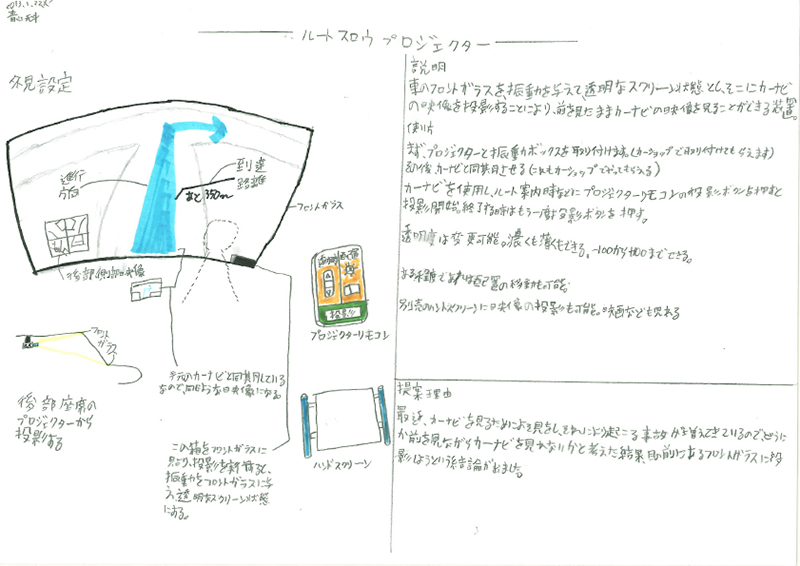 ルートスロウプロジェクター
外見設定
進行
方向
到達
距離
あと350m
フロントガラス
後部側部の映像
透明度
配置
投影
プロジェクターリモコン
フロント
ガラス
後部座席の
プロジェクターから
投影する
手元のカーナビと同期している
なので、同じような映像になる
この箱をフロントガラスに
貼り、投影を
振動をフロントガラスに与
え透明なスクリーン状態
にする。
ハンドスクリーン
説明
車のフロントガラスを振動を与えて透明なスクリーン状態とし、そこにカーナビ
の映像を投影することにより、前を見たままカーナビの映像を見ることができる装置。
使い方
まず、プロジェクターと振動ボックスを取り付けます。(カーショップで取り付けてもらえます)
その後、カーナビと同期させる(これもカーショップでやってもらえる)
カーナビを使用し、ルート案内時などにプロジェクターリモコンの投影ボタンを押すと
投影開始。終了する時はもう一度投影ボタンを押す。
透明度は変更可能。濃くも薄くもできる。-100から100までできる。
ある距離であれば配置の移動も可能。
別売のハンドスクリーンに映像の投影も可能。映画なども見れる
提案理由
最近、カーナビを見るためによそ見をし、それにより起こる事故が増えてきているので、どうに
か前を見ながらカーナビを見れないかと考えた結果、目の前にあるフロントガラスに投
影しようという結論が出ました。